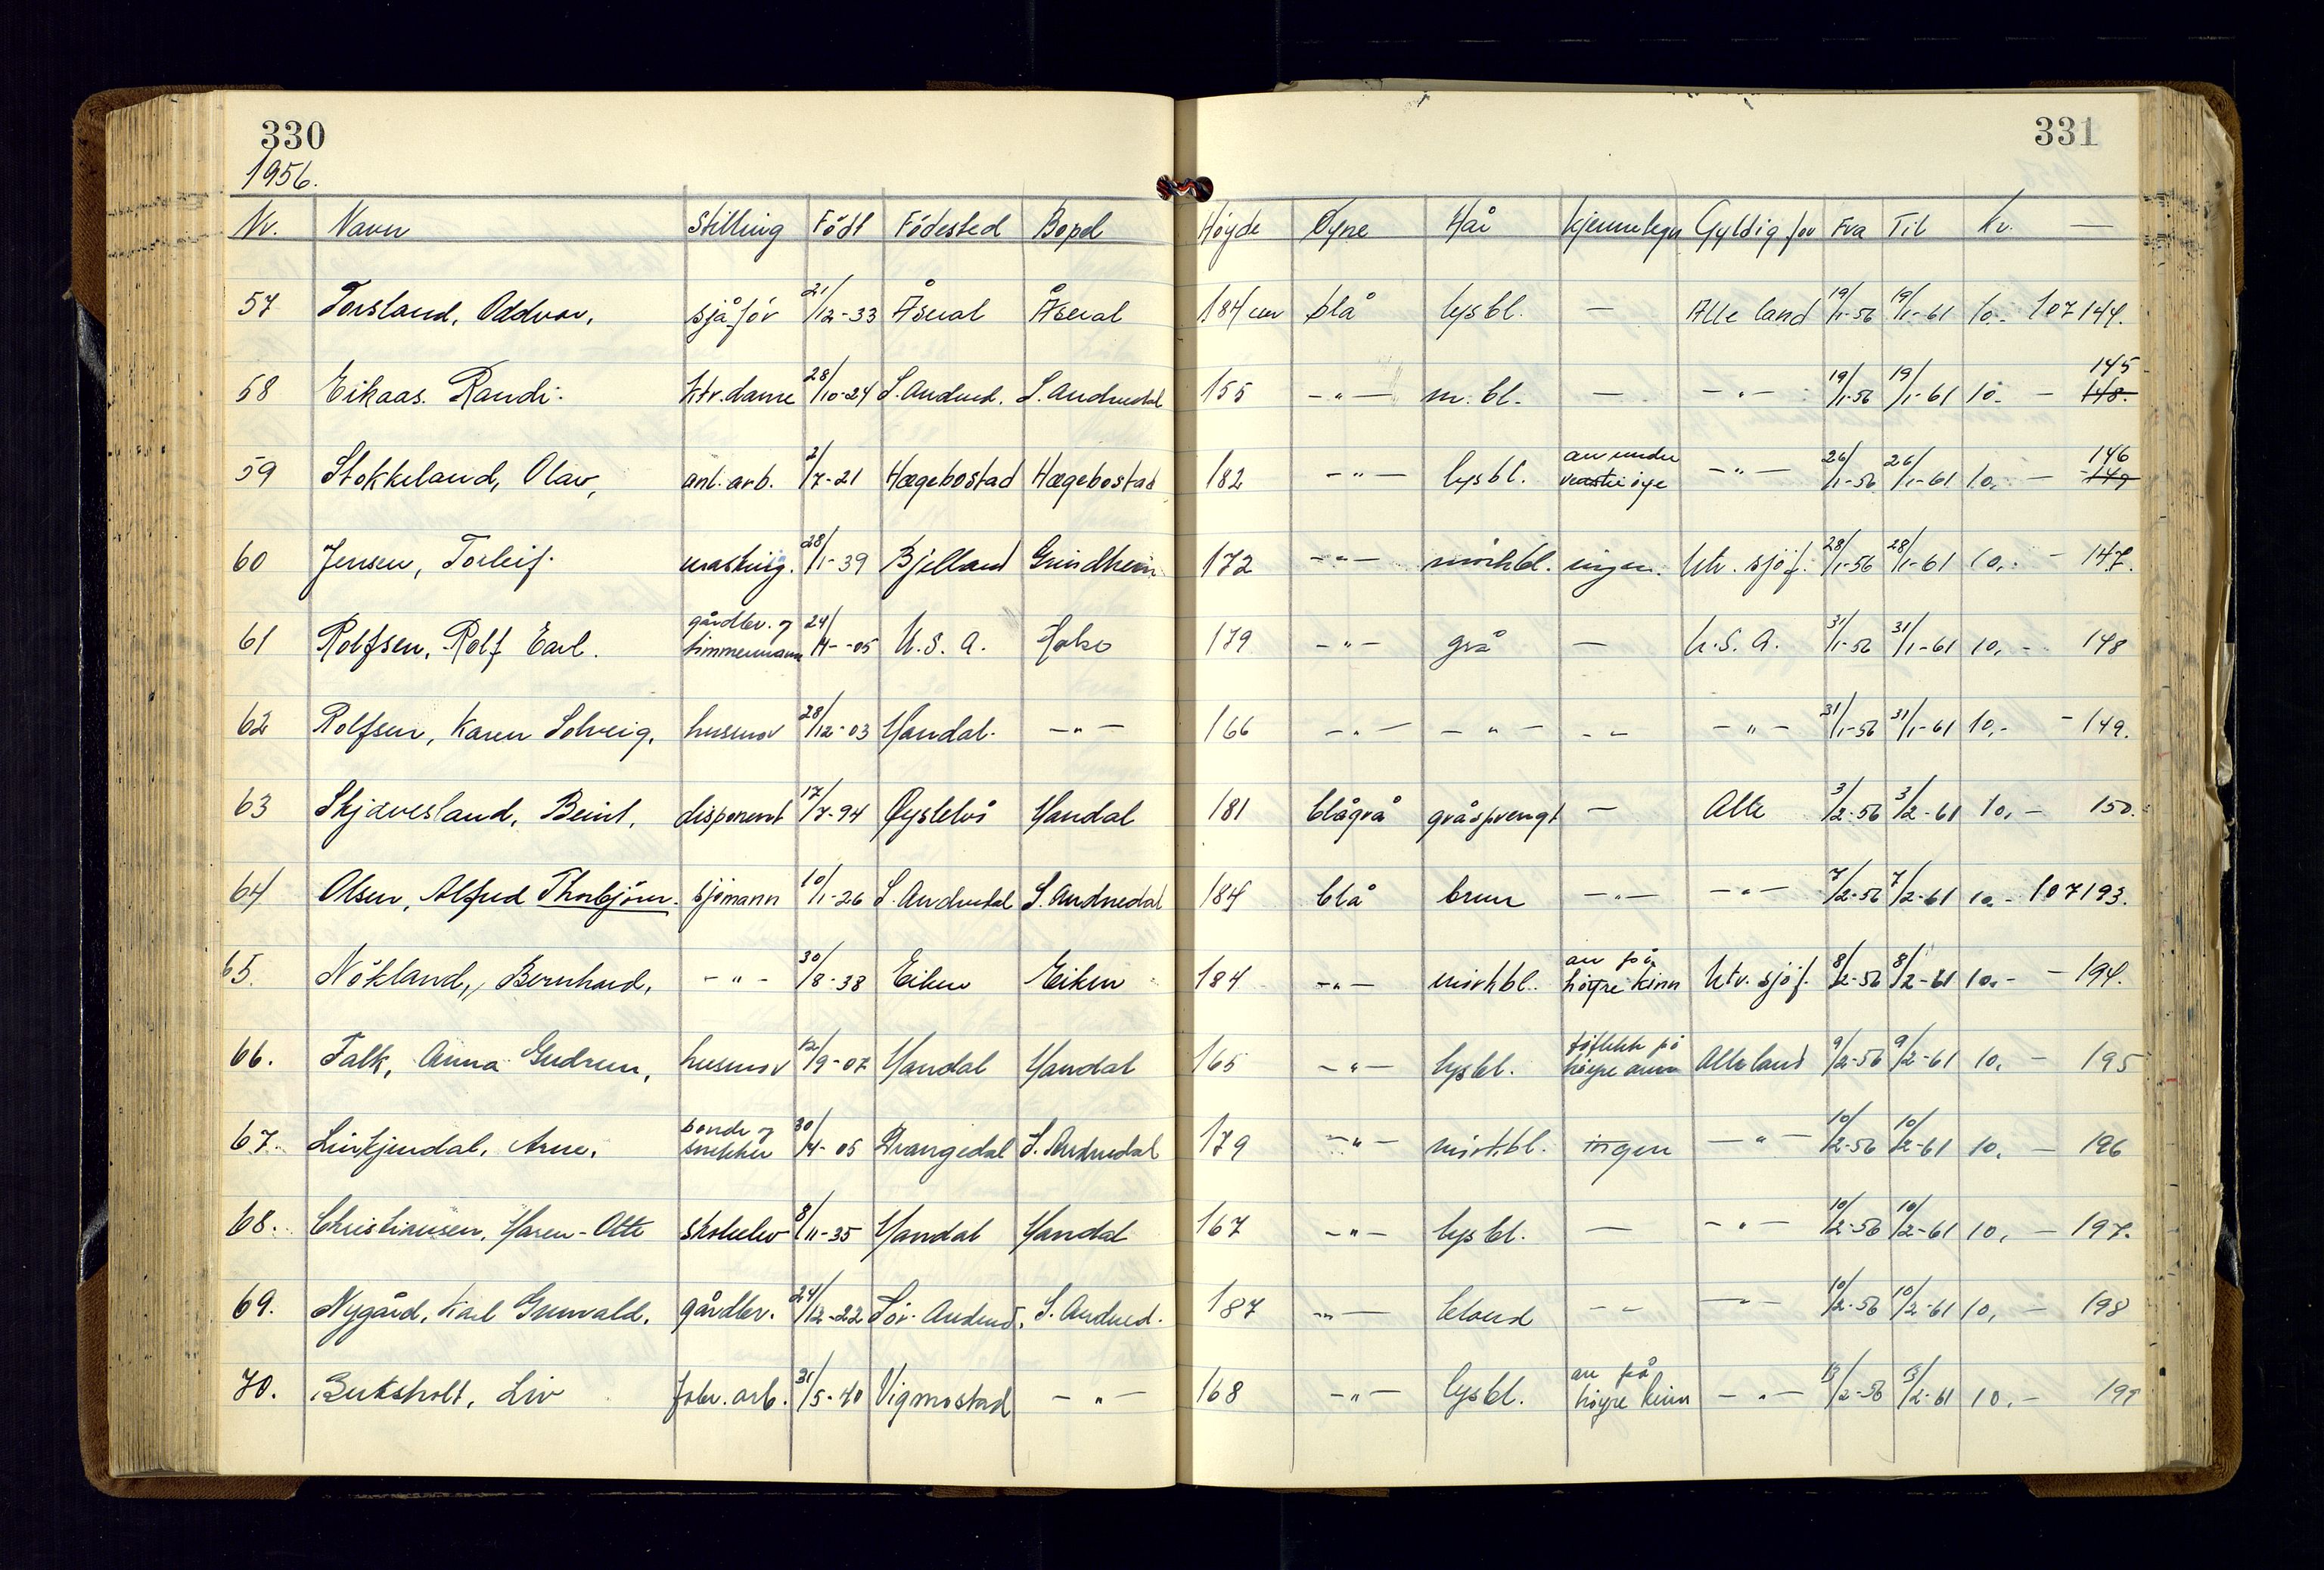 330
331
1956.
Nr. Navn Stilling Född Födested Bopel Höyde Øyne Hår Kjennetegn Gyldig for Fra Til Kr. —
57 Torsland, Oddvar, sjåför 21/12-33 Åseral Åseral 184 cm blå lysbl. — Alle land 19/1-56 19/1-61 10.- 107144.
58 Eikaas. Randi. ktr.dame 28/10-24 S. Audned. S. Audnedal 155 -"- m. bl. — -"- 19/1-56 19/1-61 10.- — 145 148.
59 Stokkeland, Olav, anl. arb. 2/7-21 Hægebostad Hægebostad 182 -"- lysbl. arr under venstre öye -"- 26/1-56 26/1-61 10,- — 146 149
60 Jensen, Torleif. masking. 28/1-39 Bjelland Grindheim 172 -"- mörkbl. ingen. Utv. sjöf. 28/1-56 28/1-61 10,- - 147.
61 Rolfsen, Rolf Earl. gårdbr. og timmermann 24/4-05 U.S.A. Holso 179 -"- grå — U.S.A. 31/1-56 31/1-61 10,- 148
62 Rolfsen, Karen Solveig, husmor 28/12-03 Mandal. -"- 166 -"- -"- -"- -"- 31/1-56 31/1-61 10,- - 149.
63 Skjævesland, Beint, disponent 17/7-94 Øyslebö Mandal 181 blågrå gråsprengt — Alle 3/2-56 3/2-61 10,- 150.
64 Olsen, Alfred Thorbjörn. sjömann 10/1-26 S. Audnedal S. Audnedal 184 blå brun -"- -"- 7/2-56 7/2-61 10.- 107193.
65. Nökland, Bernhard, -"- 30/8-38 Eiken Eiken 184 -"- mörkbl. arr på höyre kinn Utv. sjöf. 8/2-56 8/2-61 10.- - 194.
66. Falk, Anna Gudrun, husmor 12/9-07 Mandal Mandal 165 -"- lysbl. föflekk på höyre arm Alle land 9/2-56 9/2-61 10,- 195
67. Linkjendal, Arne. bonde og snekker 30/4-05 Drangedal S. Audnedal 179 -"- mörkbl. ingen -"- 10/2-56 10/2-61 10, — 196
68. Christiansen, Maren-Otte skoleelev 8/11-35 Mandal Mandal 167 -"- lysbl. — -"- 10/2-56 10/2-61 10, — 197.
69. Nygård, Karl Gunvald. gårdbr. 24/12-22 Sör-Audned. S. Audned. 187 -"- blond -"- -"- 10/2-56 10/2-61 10, - 198
70. Buksholt, Liv fabr. arb. 31/5-40 Vigmostad -"- 168 -"- lysbl. arr på höyre kinn -"- 13/2-56 13/2-61 10.- 199